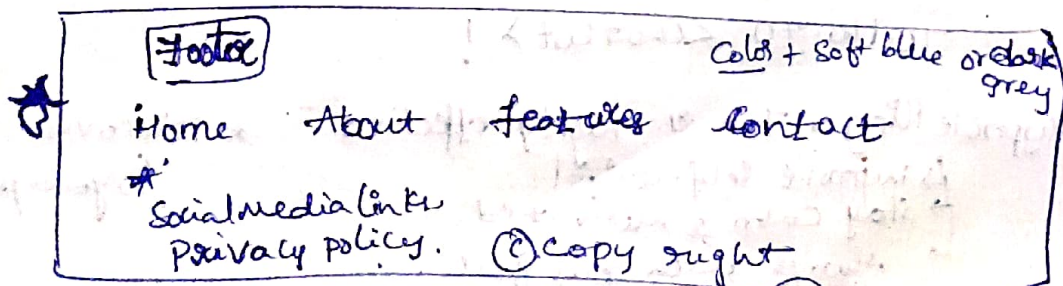 Footer
Color + Soft blue or dark
grey
Home About features Contact
* Social media links
Privacy policy. © Copy right